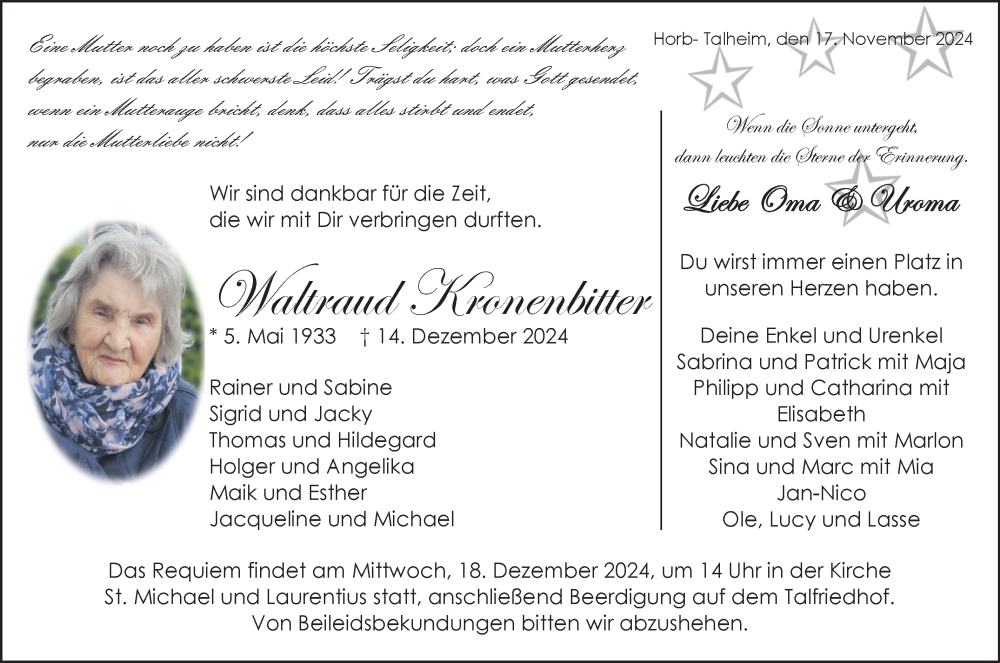 Eine Mutter noch zu haben ist die höchste Seligkeit; doch ein Mutterherz
begraben, ist das aller schwerste Leid! Trägst du hart, was Gott gesendet,
wenn ein Mutterauge bricht, denk, dass alles stirbt und endet,
nur die Mutterliebe nicht!
Wir sind dankbar für die Zeit,
die wir mit Dir verbringen durften.
Waltraud Kronenbitter
* 5. Mai 1933 † 14. Dezember 2024
Rainer und Sabine
Sigrid und Jacky
Thomas und Hildegard
Holger und Angelika
Maik und Esther
Jacqueline und Michael
Horb- Talheim, den 17. November 2024
Wenn die Sonne untergeht,
dann leuchten die Sterne der Erinnerung.
Liebe Oma & Uroma
Du wirst immer einen Platz in
unseren Herzen haben.
Deine Enkel und Urenkel
Sabrina und Patrick mit Maja
Philipp und Catharina mit
Elisabeth
Natalie und Sven mit Marlon
Sina und Marc mit Mia
Jan-Nico
Ole, Lucy und Lasse
Das Requiem findet am Mittwoch, 18. Dezember 2024, um 14 Uhr in der Kirche
St. Michael und Laurentius statt, anschließend Beerdigung auf dem Talfriedhof.
Von Beileidsbekundungen bitten wir abzushehen.